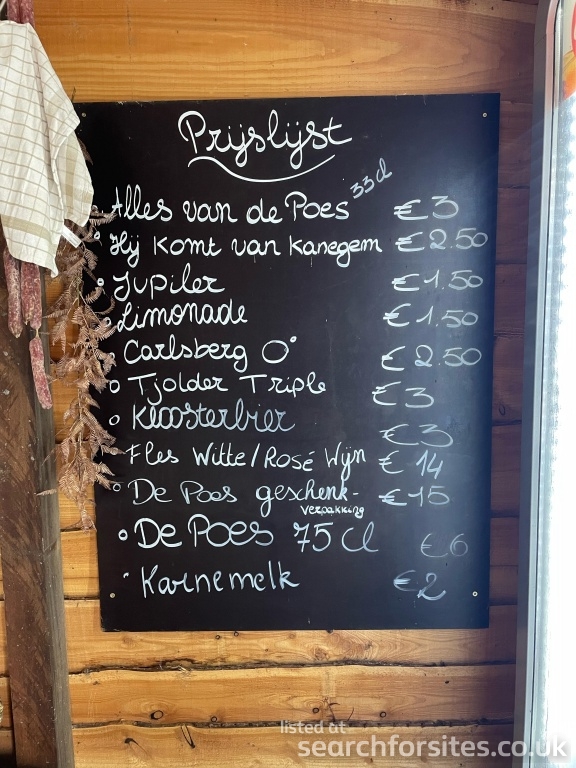 Prijslijst
Alles van de Poes 33cl €3
Hij komt van Kanegem €2.50
Jupiler €1.50
Limonade €1.50
Carlsberg 0° €2.50
Tjolder Triple €3
Kloosterbier €3
Fles Witte/Rosé Wijn €14
De Poes geschenk- €15
verpakking
De Poes 75cl €6
Karnemelk €2
listed at
searchforsites.co.uk